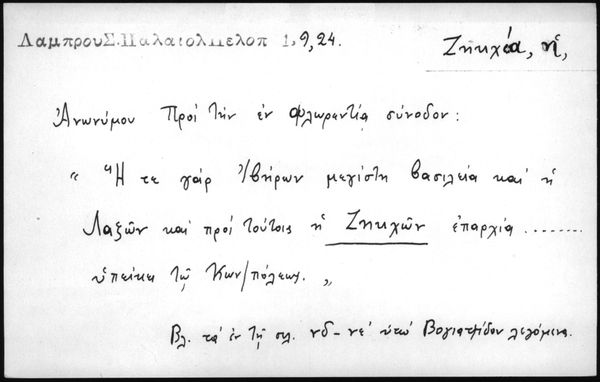 Λαμπρου Σ. Παλαιολ Πελοπ 1, 9, 24.
Ζηκχία, ἡ,
Ἀνωνύμου Πρὸς τὴν ἐν Φλωρεντίᾳ σύνοδον:
"Ἥ τε γὰρ Ἰβήρων μεγίστη βασιλεία καὶ ἡ
Λαζῶν καὶ πρὸς τούτοις ἡ Ζηκχῶν ἐπαρχία ........
ὑπείκει τῷ Κων/πόλεως."
Βλ. τὰ ἐν τῇ σελ. νδ-νε' ὑπὸ Βογιατζίδου λεγόμενα.